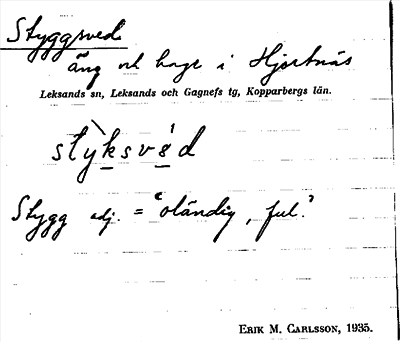 Styggsved
äng och hage i Hjortnäs
Leksands sn, Leksands och Gagnefs tg, Kopparbergs län.
stỳksvéd
Stygg adj. = "oländig, ful."
ERIK M. CARLSSON, 1935.